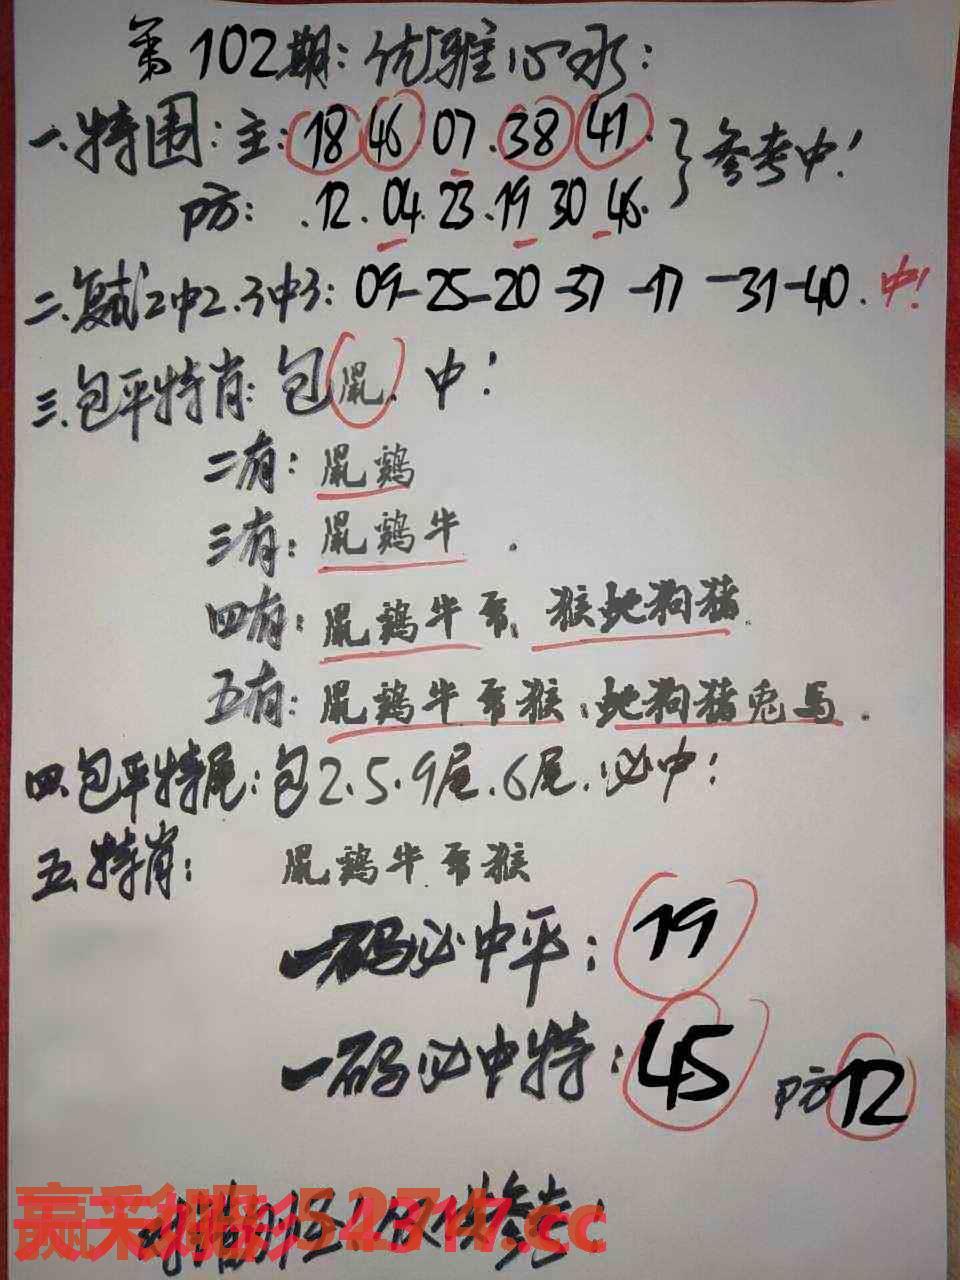 第102期:优雅心水:
一.特围:主:18 46.07.38 41.}参考中!
防:.12.04.23.19 30 46.
二.复试2中2.3中3:09-25-20-37-17-31-40.中!
三.包平特肖:包鼠.中!
二有:鼠鸡
三有:鼠鸡牛.
四有:鼠鸡牛 猴蛇狗猪.
五有:鼠鸡牛 猴:蛇狗猪兔马.
四.包平特尾:包2.5.9尾.6尾.必中!
五.特肖:鼠鸡牛. 猴
一码必中平:19
一码必中特:45 防12
赢彩吧:52717.cc
参考